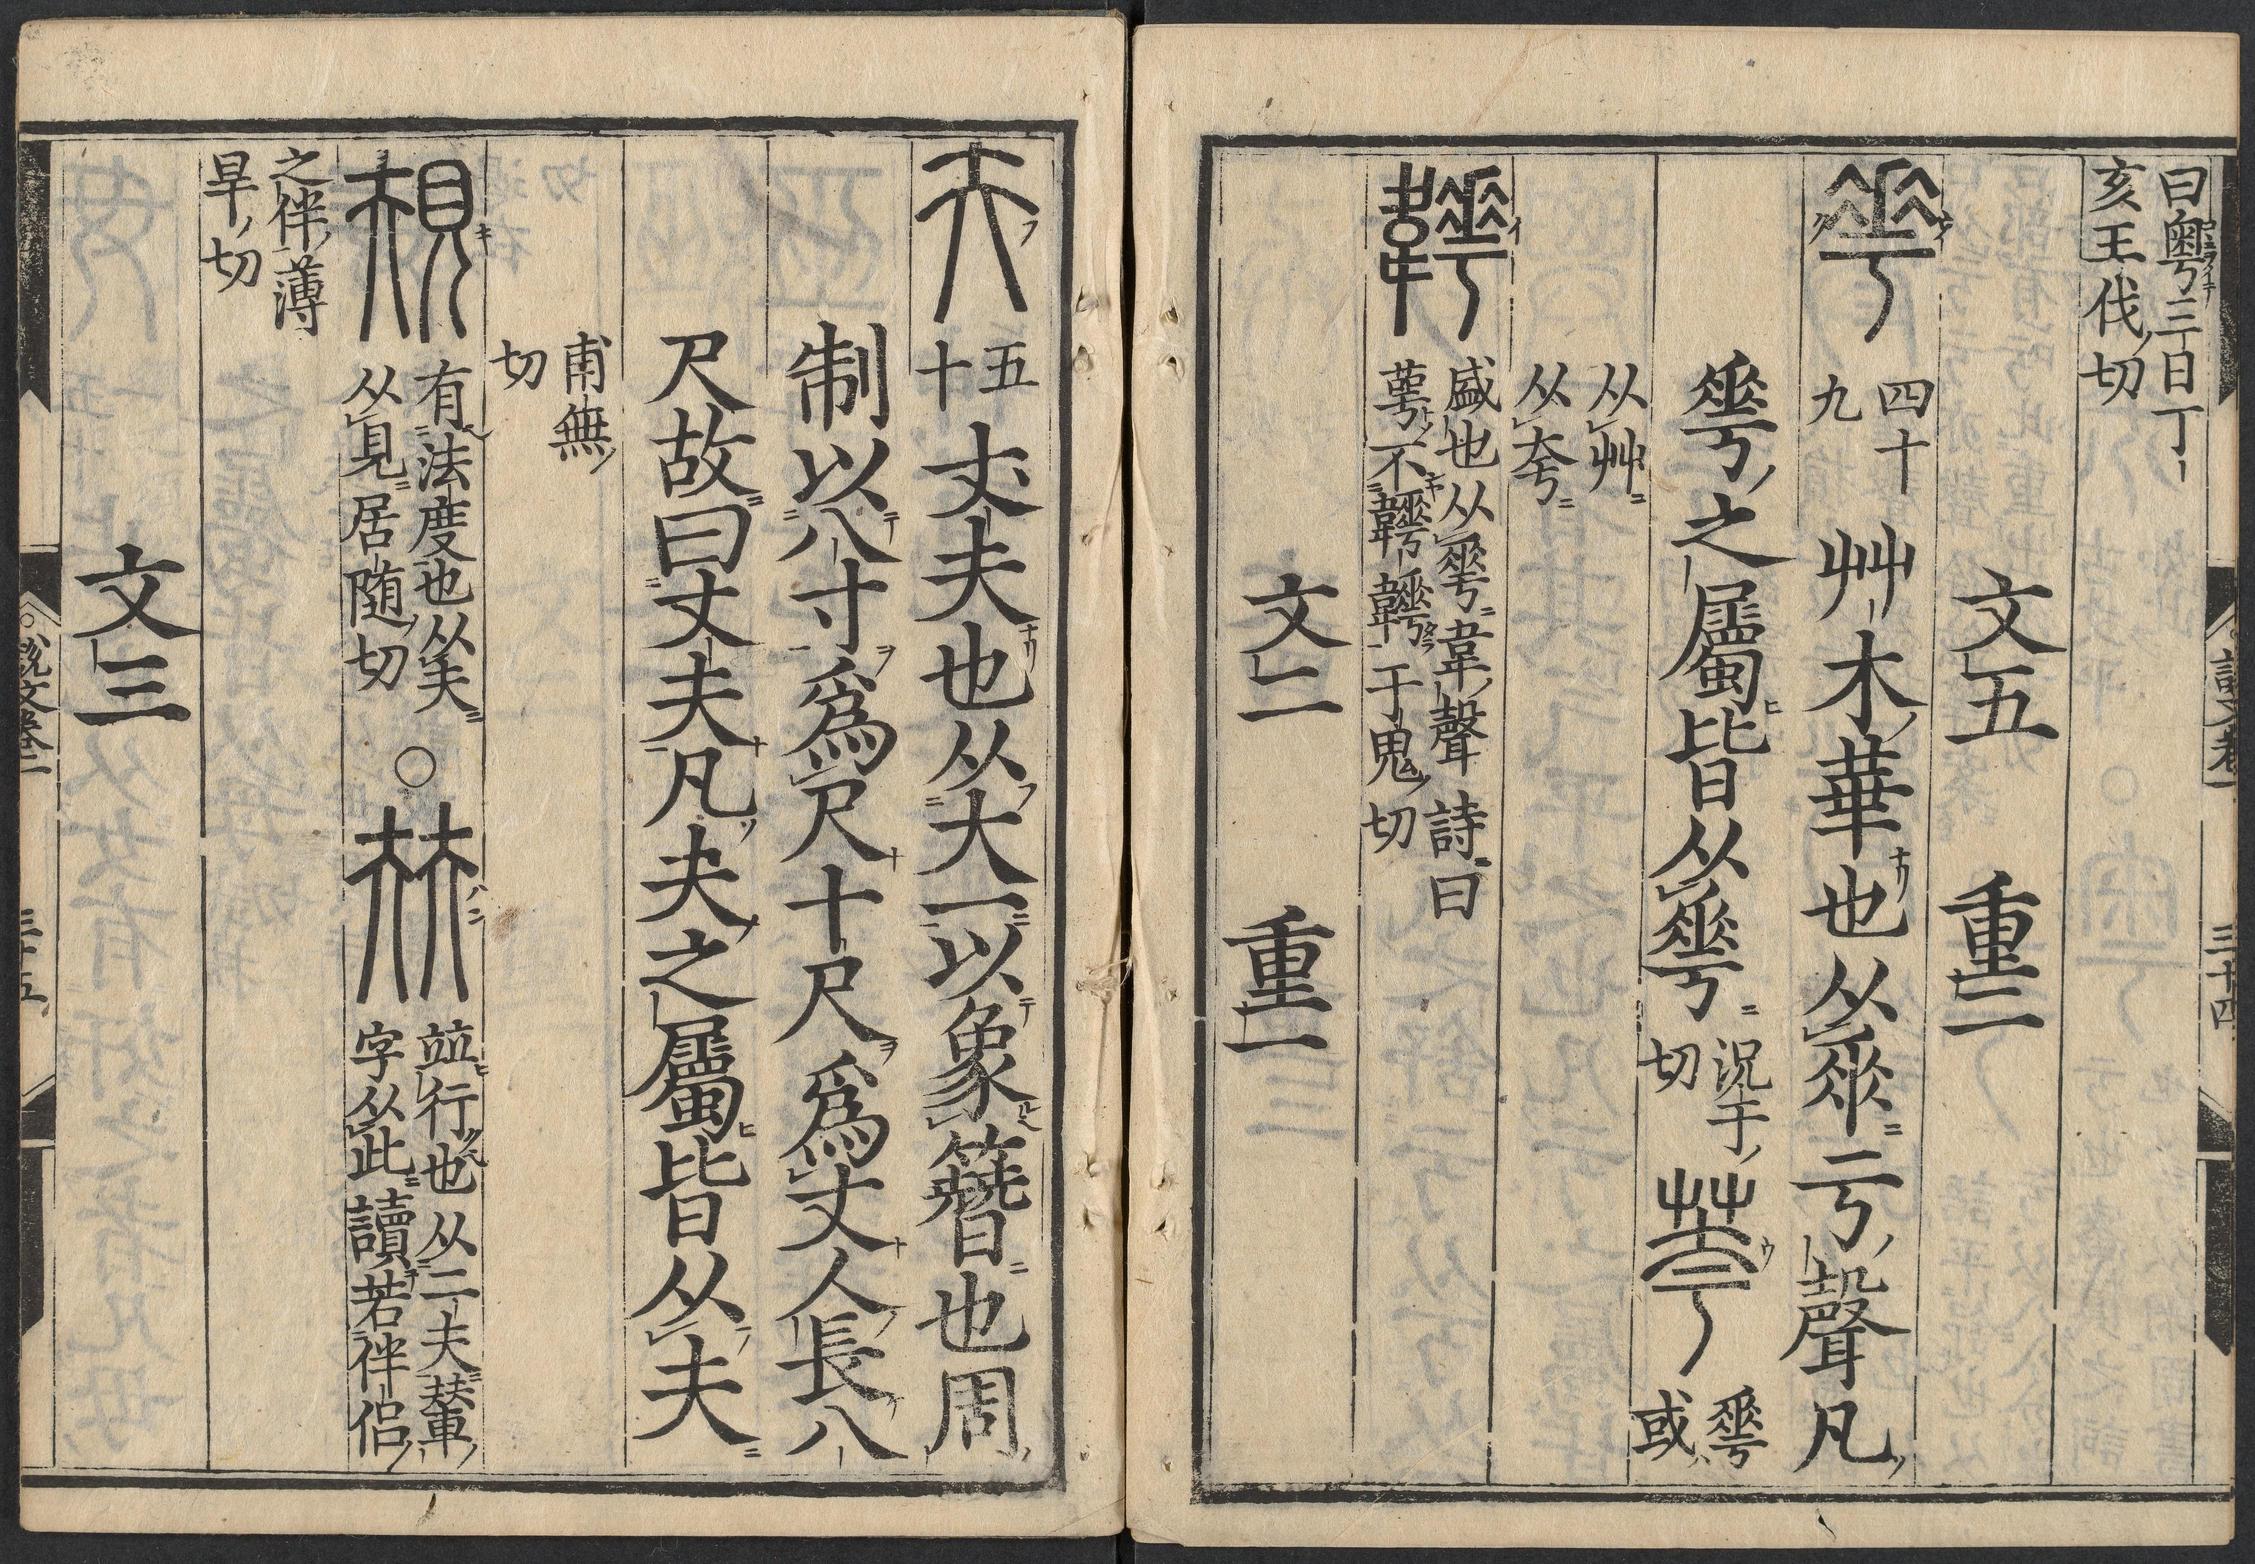 曰粤三日丁
亥王伐切
文五　重二
𠌶　四十九　艸木華也从𠂹亏聲凡
𠌶之屬皆从𠌶　況于切　荂　𠌶或
从艸
从夸
韡　盛也从𠌶韋聲詩曰
萼不韡韡于鬼切
文二　重一
三十四
夫　五十　丈夫也从大一以象簪也周
制以八寸爲尺十尺爲丈人長八
尺故曰丈夫凡夫之屬皆从夫
甫無
切
規　有法度也从夫
从見居随切
○㚘　竝行也从二夫輦
字从此讀若伴侣
之伴薄
旱切
文三
三十五